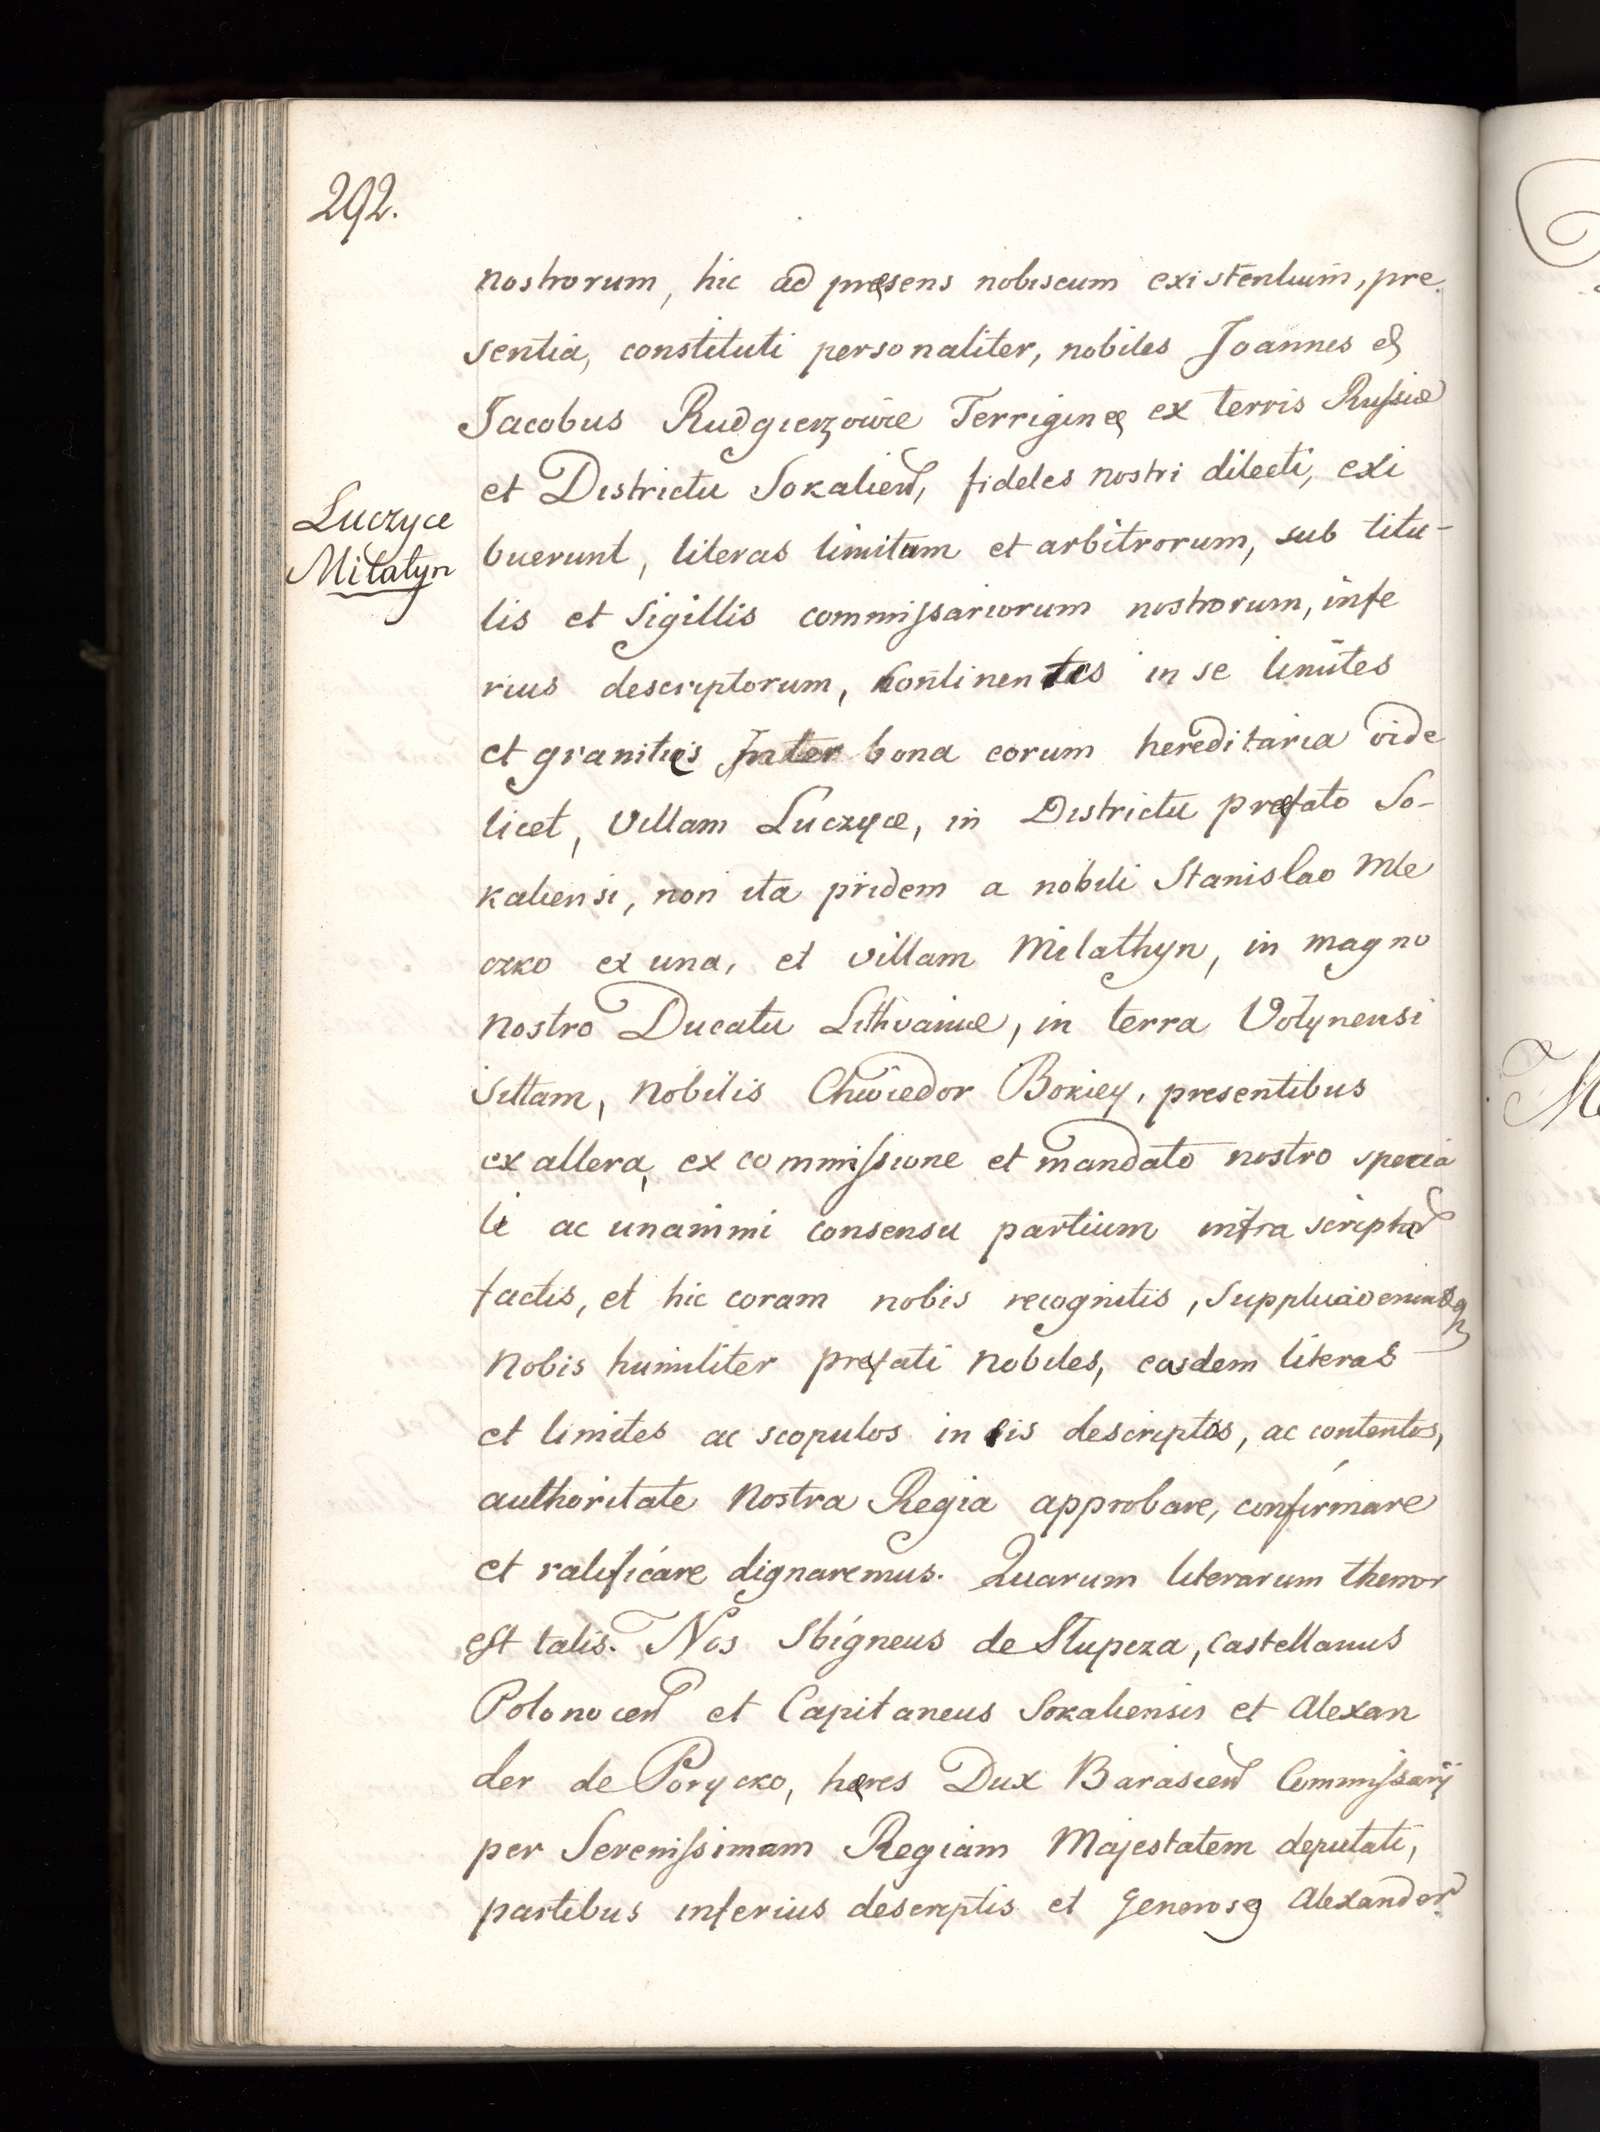 292.
nostrorum, hic ad præsens nobiscum existentium, pre
sentia, constituti personaliter, nobiles Joannes &
Jacobus Rudgierzowie Terriginę ex terris Russiæ
et Districtu Sokalien, fideles nostri dilecti, exi
Luczyce
Milatyn
buerunt, literas limitum et arbitrorum, sub titu-
lis et Sigillis commissariorum nostrorum, infe
rius descriptorum, continentes in se limites
et granities Inter bona eorum hereditaria vide
licet, Villam Luczyce, in Districtu præfato So-
kaliensi, non ita pridem a nobili Stanislao Mle
czko ex una, et villam Milathyn, in magno
nostro Ducatu Lithvaniæ, in terra Volynensi
sittam, nobilis Chwiedor Bokiey, presentibus
ex altera, ex commissione et mandato nostro specia
li ac unanimi consensu partium infra scriptor
factis, et hic coram nobis recognitis,
nobis humiliter prefati nobiles, easdem literas
et limites ac scopulos in eis descriptos, ac contentos,
authoritate nostra Regia approbare, confirmare
et ratificare dignaremus. Quarum literarum thenor
est talis. Nos Sbigneus de Slupcza, Castellanus
Polonocen et Capitaneus Sokaliensis et Alexan
der de Porycko, hæres Dux Barasien Commissarij
per Serenissimam Regiam Majestatem deputati,
partibus inferius descriptis et Generosę Alexandor